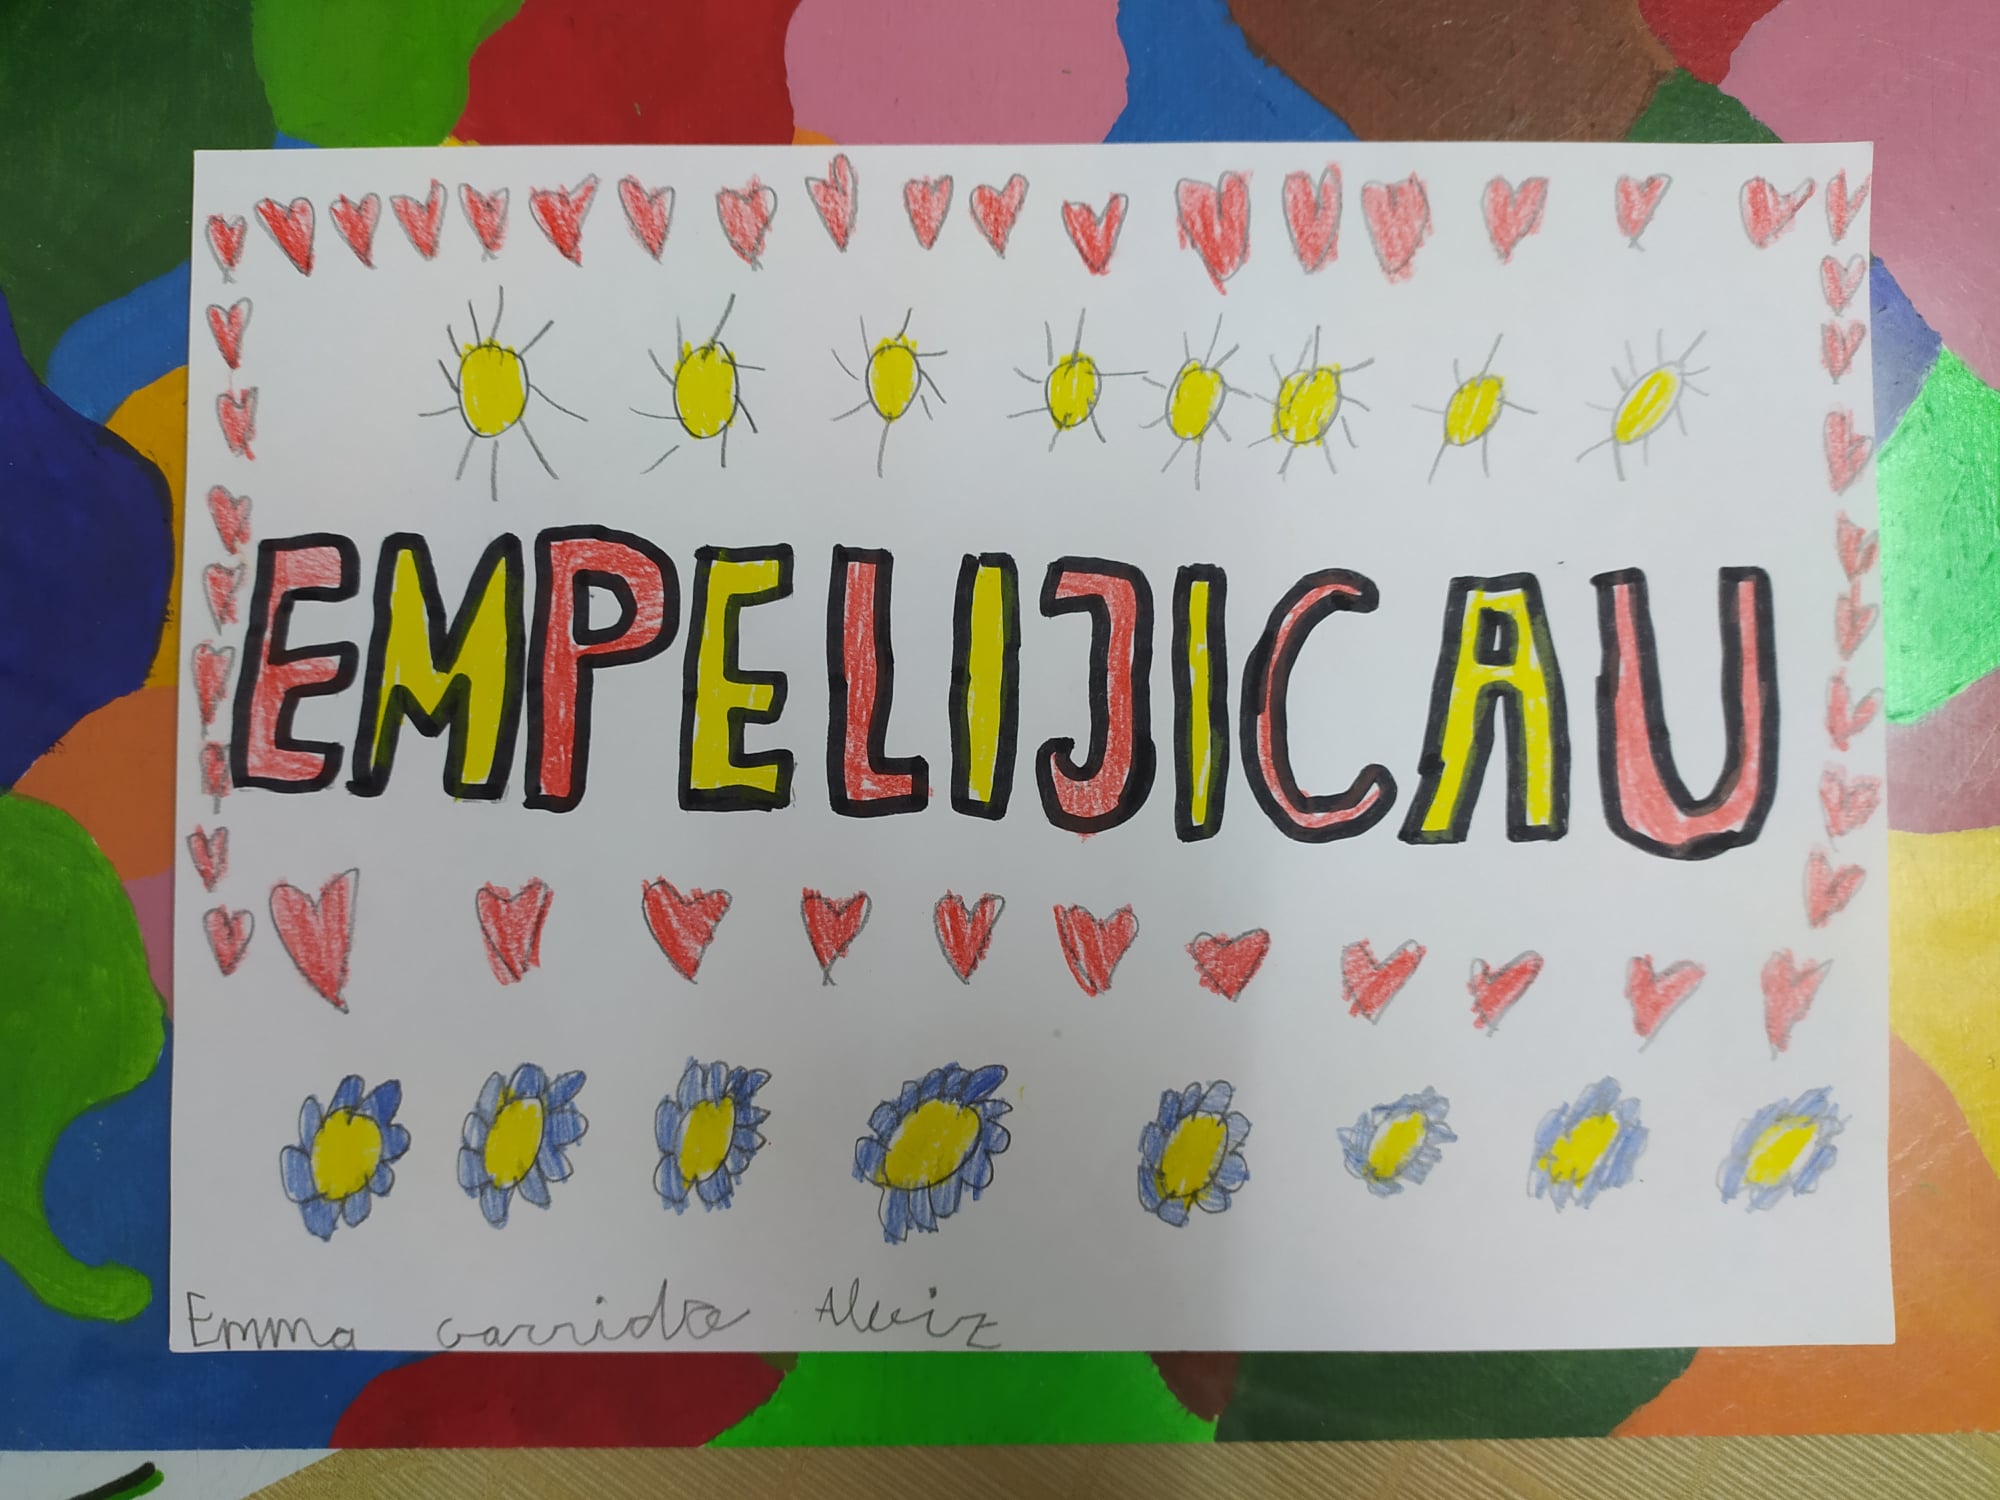 EMPELIJICAU
Emma Garrido Alviz